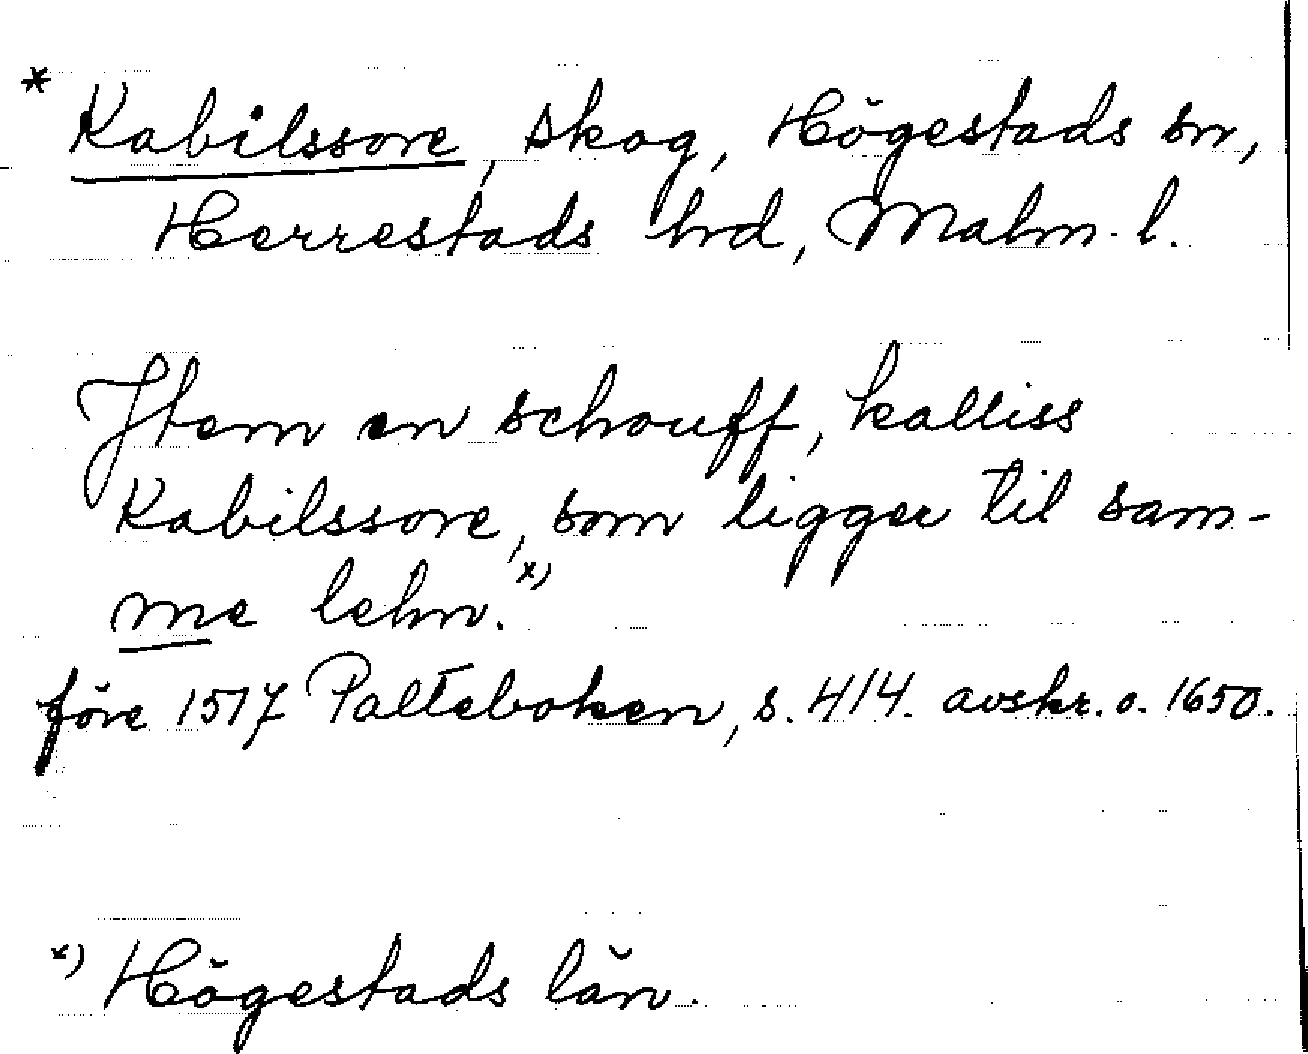 * Kabilssore, skog, Högestads sn,
Herrestads hrd, Malm. l.
Jtem en schouff, kalliss
Kabilssore, som ligger til sam-
me lehn.x)
före 1517 Palteboken, s. 414. avskr. o. 1650.
x) Högestads län.